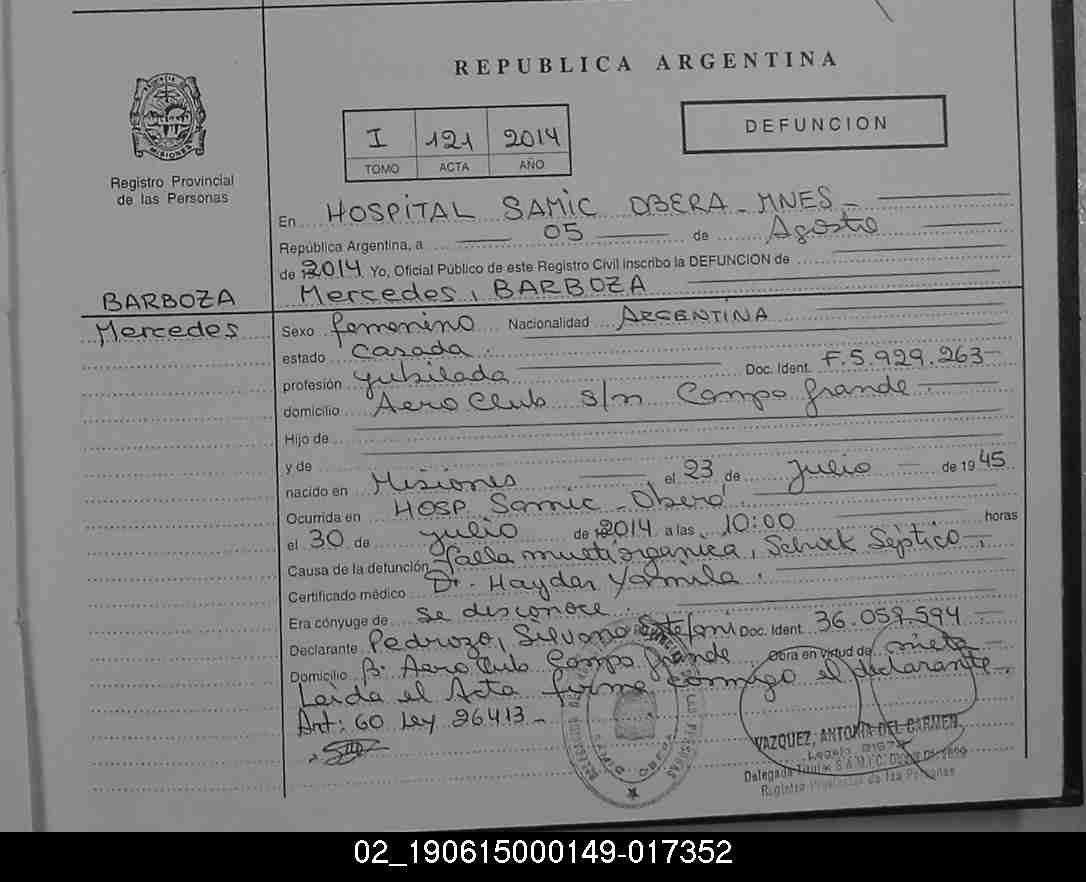 REPUBLICA ARGENTINA
I 121 2014
TOMO ACTA AÑO
DEFUNCION
PROVINCIA DE
MISIONES
Registro Provincial
de las Personas
BARBOZA
Mercedes
En HOSPITAL SAMIC OBERA - MNES -
República Argentina, a 05 de Agosto
de 2014 Yo, Oficial Público de este Registro Civil inscribo la DEFUNCION de
Mercedes, BARBOZA
Sexo femenino Nacionalidad ARGENTINA
estado Casada.
profesión Jubilada Doc. Ident. F.5.929.263-
domicilio Aero Club s/n Campo Grande.
Hijo de
y de
nacido en Misiones el 23 de Julio de 1945
Ocurrida en HOSP Samic - Oberá
el 30 de Julio de 2014 a las 10:00 horas
Causa de la defunción falla multiorganica, Schock Séptico -
Certificado médico Dr. Haydar Yamila.
Era cónyuge de se desconoce.
Declarante Pedrozo, Silvana Estefani Doc. Ident. 36.058.594
Domicilio B. Aero Club Campo Grande Obra en virtud de nieta
Leida el Acta firma conmigo el declarante.
Art: 60 Ley 26413 -
VAZQUEZ, ANTONIA DEL CARMEN
Legajo
Delegada Titular S.A.M.I.C.
Registro Provincial de las Personas
02_190615000149-017352